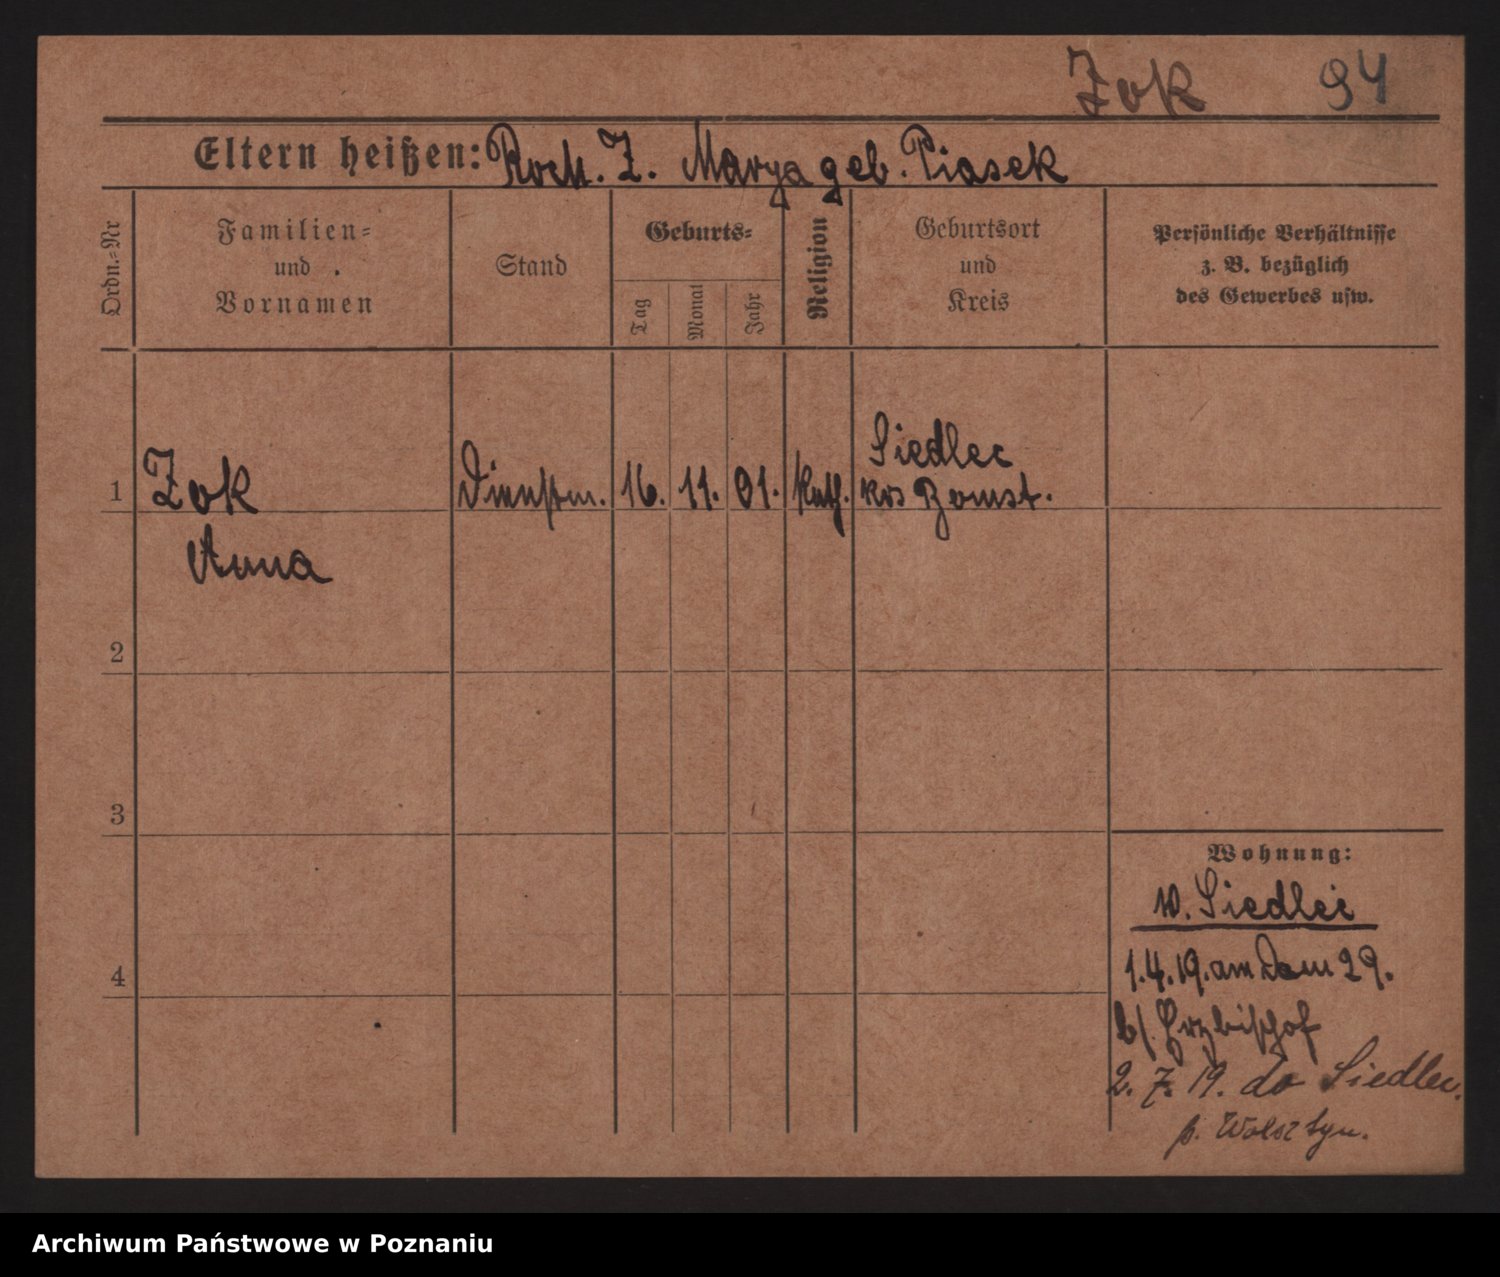 Żok 94
Eltern heißen: Roch. Ż. Marya geb. Piasek
Ordn.-Nr
Familien-
und
Vornamen
Stand
Geburts-
Tag
Monat
Jahr
Religion
Geburtsort
und
Kreis
Persönliche Verhältnisse
z. B. bezüglich
des Gewerbes usw.
1 Żok Dienstm. 16. 11. 01. Kath. Siedlec
Krs Bomst.
Anna
2
3
4
Wohnung:
v. Siedlec
1.4.19. am Dom 29.
b/. Erzbischof
2. 7. 19. do Siedlec.
p. Wolsztyn.
Archiwum Państwowe w Poznaniu